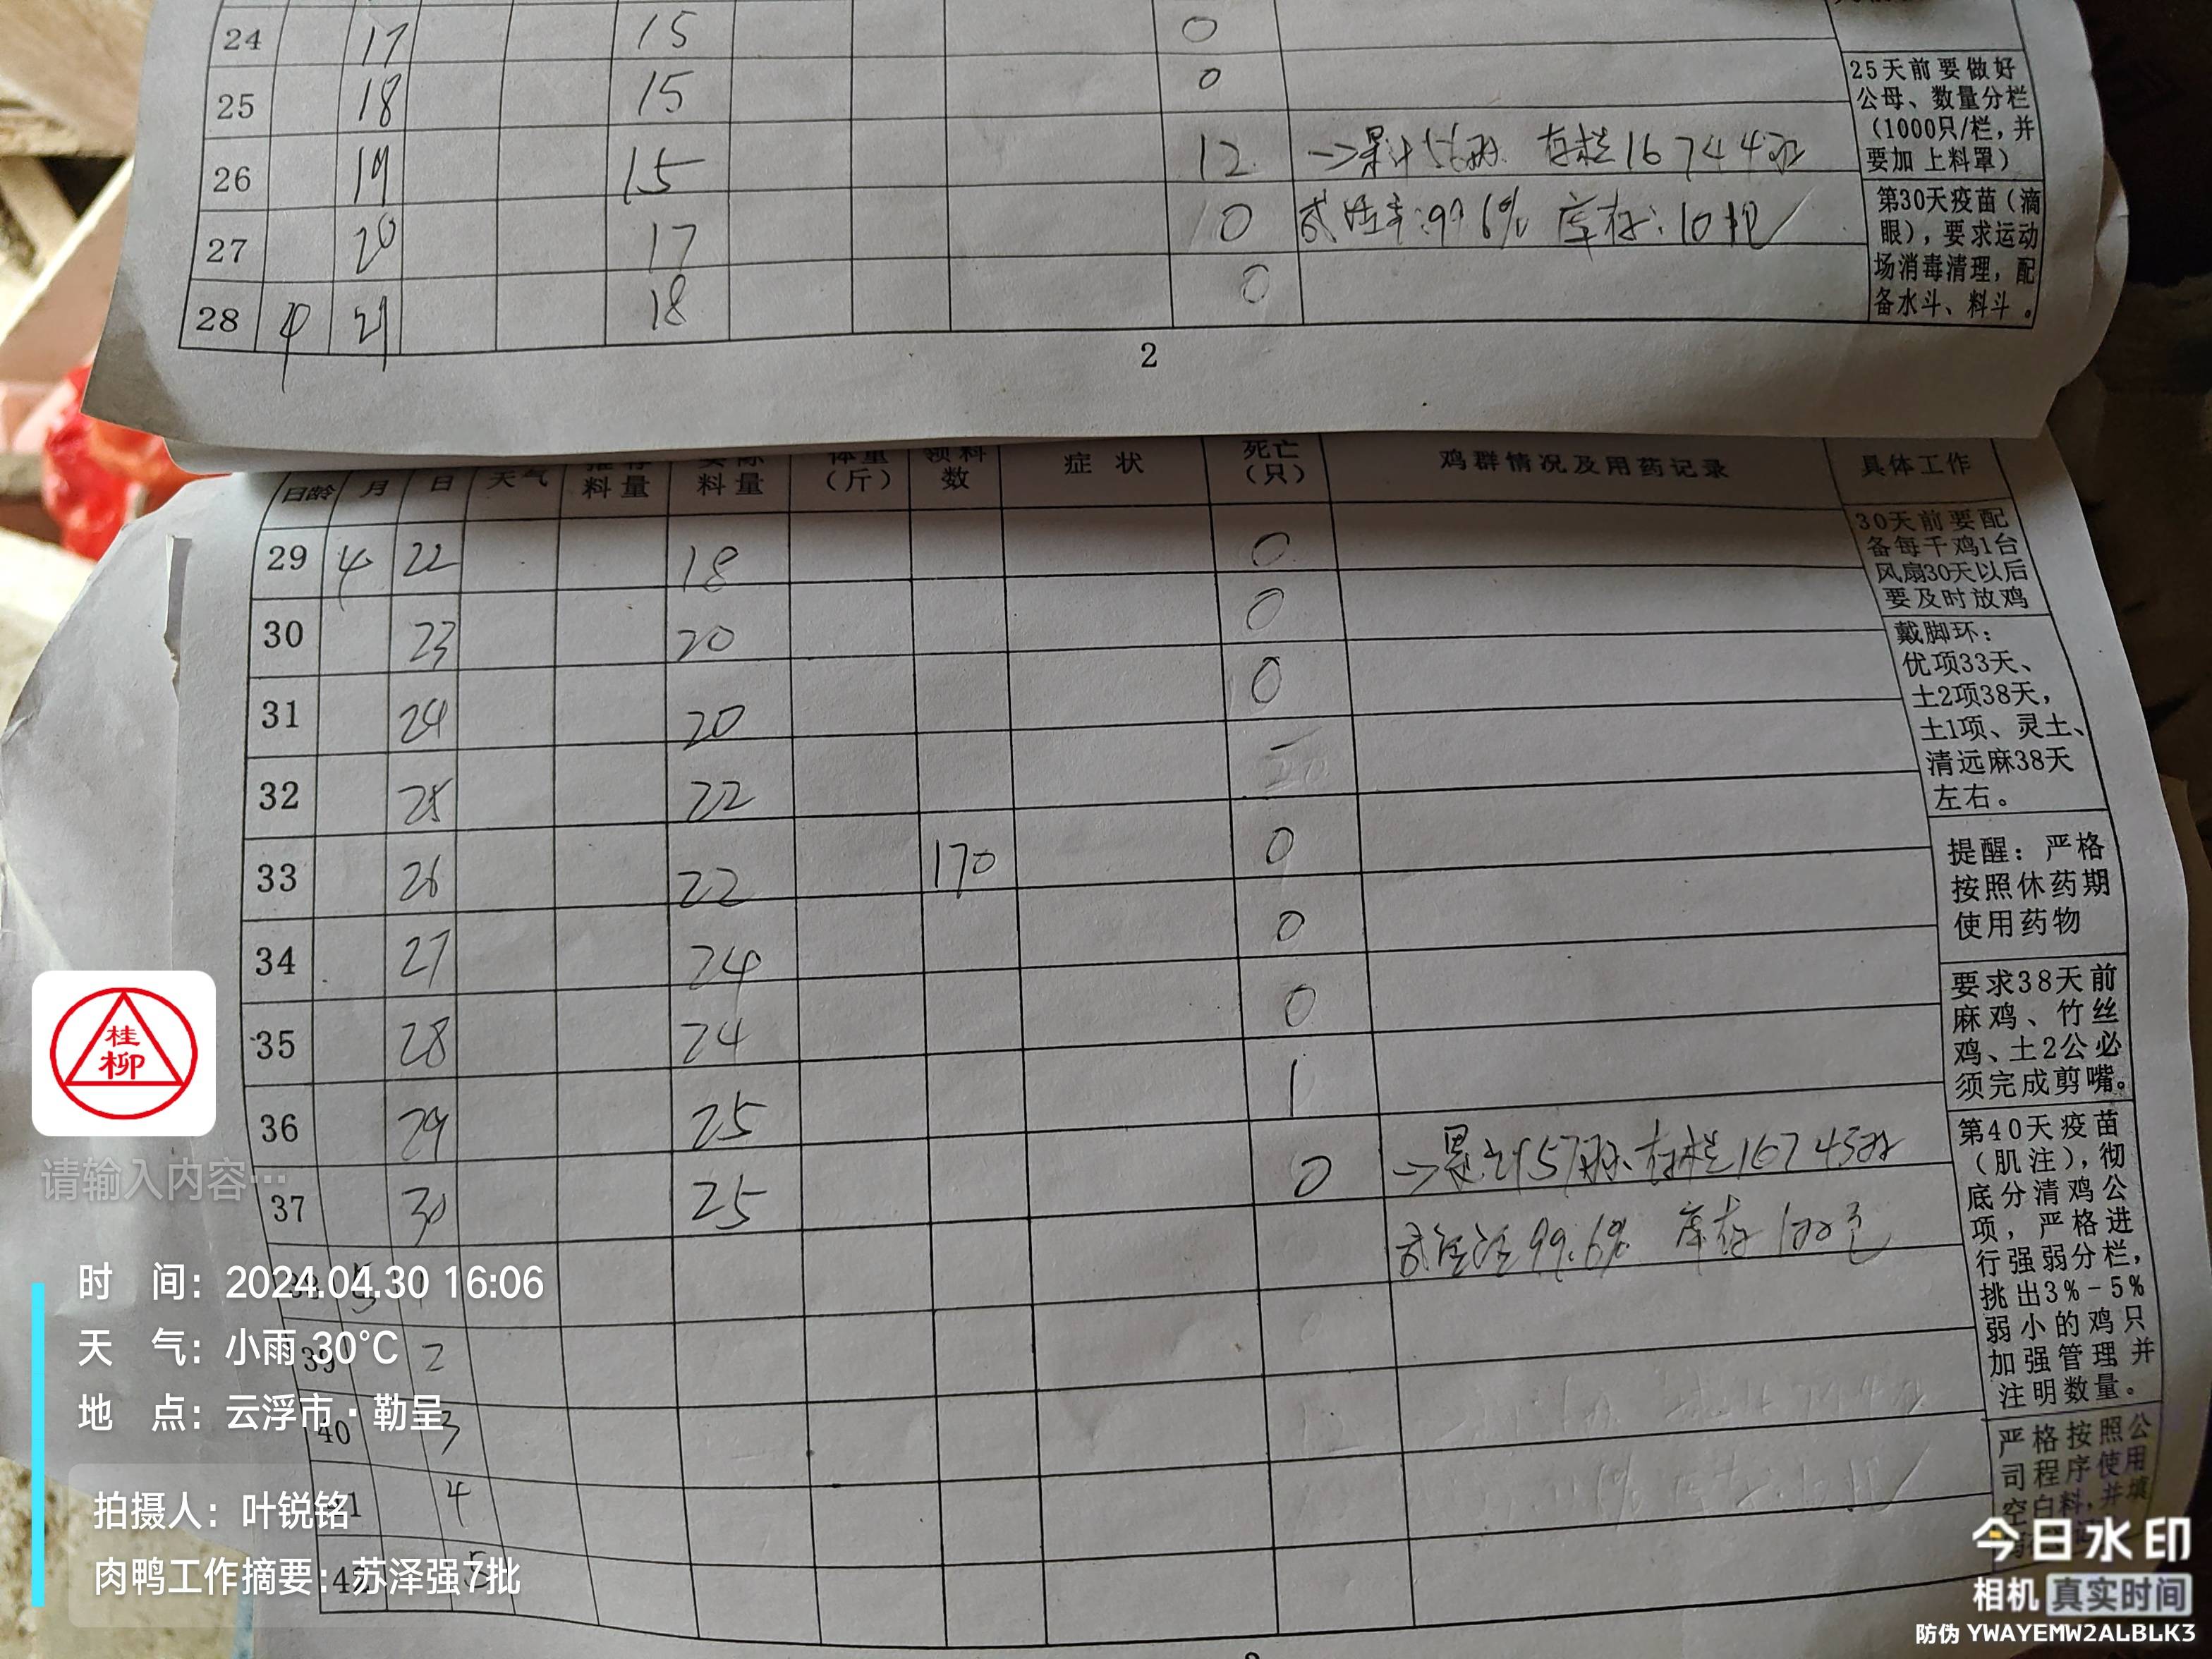 24 17 15 0
25 18 15 0
26 19 15 12 →累计56羽 存栏16744羽
27 20 17 0 成活率:99.6% 库存:10包
28 4 21 18 0
25天前要做好
公母、数量分栏
(1000只/栏,并
要加上料罩)
第30天疫苗(滴
眼),要求运动
场消毒清理,配
备水斗、料斗。
2
日龄 月 日 天气 推荐料量 实际料量 体重(斤) 领料数 症状 死亡(只) 鸡群情况及用药记录 具体工作
29 4 22 18 0
30 23 20 0
31 24 20 0
32 25 22
33 26 22 170 0
34 27 24 0
35 28 24 0
36 29 25 1
37 30 25 0 →累计57羽、存栏16743羽
38 5 1 99.6% 库存100包
39 2
40 3
41 4
42 5
30天前要配
备每千鸡1台
风扇30天以后
要及时放鸡
戴脚环:
优项33天、
土2项38天,
土1项、灵土、
清远麻38天
左右。
提醒:严格
按照休药期
使用药物
要求38天前
麻鸡、竹丝
鸡、土2公必
须完成剪嘴。
第40天疫苗
(肌注),彻
底分清鸡公
项,严格进
行强弱分栏,
挑出3%-5%
弱小的鸡只
加强管理并
注明数量。
严格按照公
司程序使用
空白料,并填
桂柳
请输入内容…
时 间:2024.04.30 16:06
天 气:小雨 30℃
地 点:云浮市·勒呈
拍摄人:叶锐铭
肉鸭工作摘要:苏泽强7批
今日水印
相机 真实时间
防伪 YWAYEMW2ALBLK3